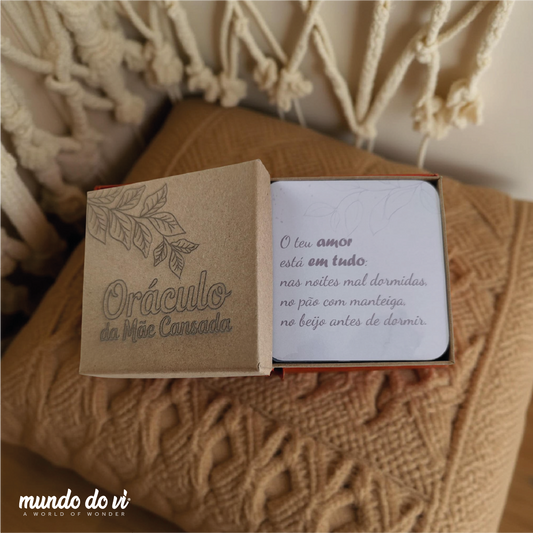 Oráculo
da Mãe Cansada
O teu amor
está em tudo:
nas noites mal dormidas,
no pão com manteiga,
no beijo antes de dormir.
mundo do vi
A WORLD OF WONDER